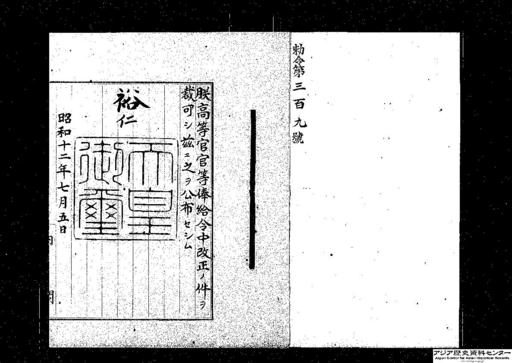 勅令第三百九號
朕高等官官等俸給令中改正ノ件ヲ
裁可シ茲ニ之ヲ公布セシム
裕仁
天皇御璽
昭和十二年七月五日
アジア歴史資料センター
Japan Center for Asian Historical Records